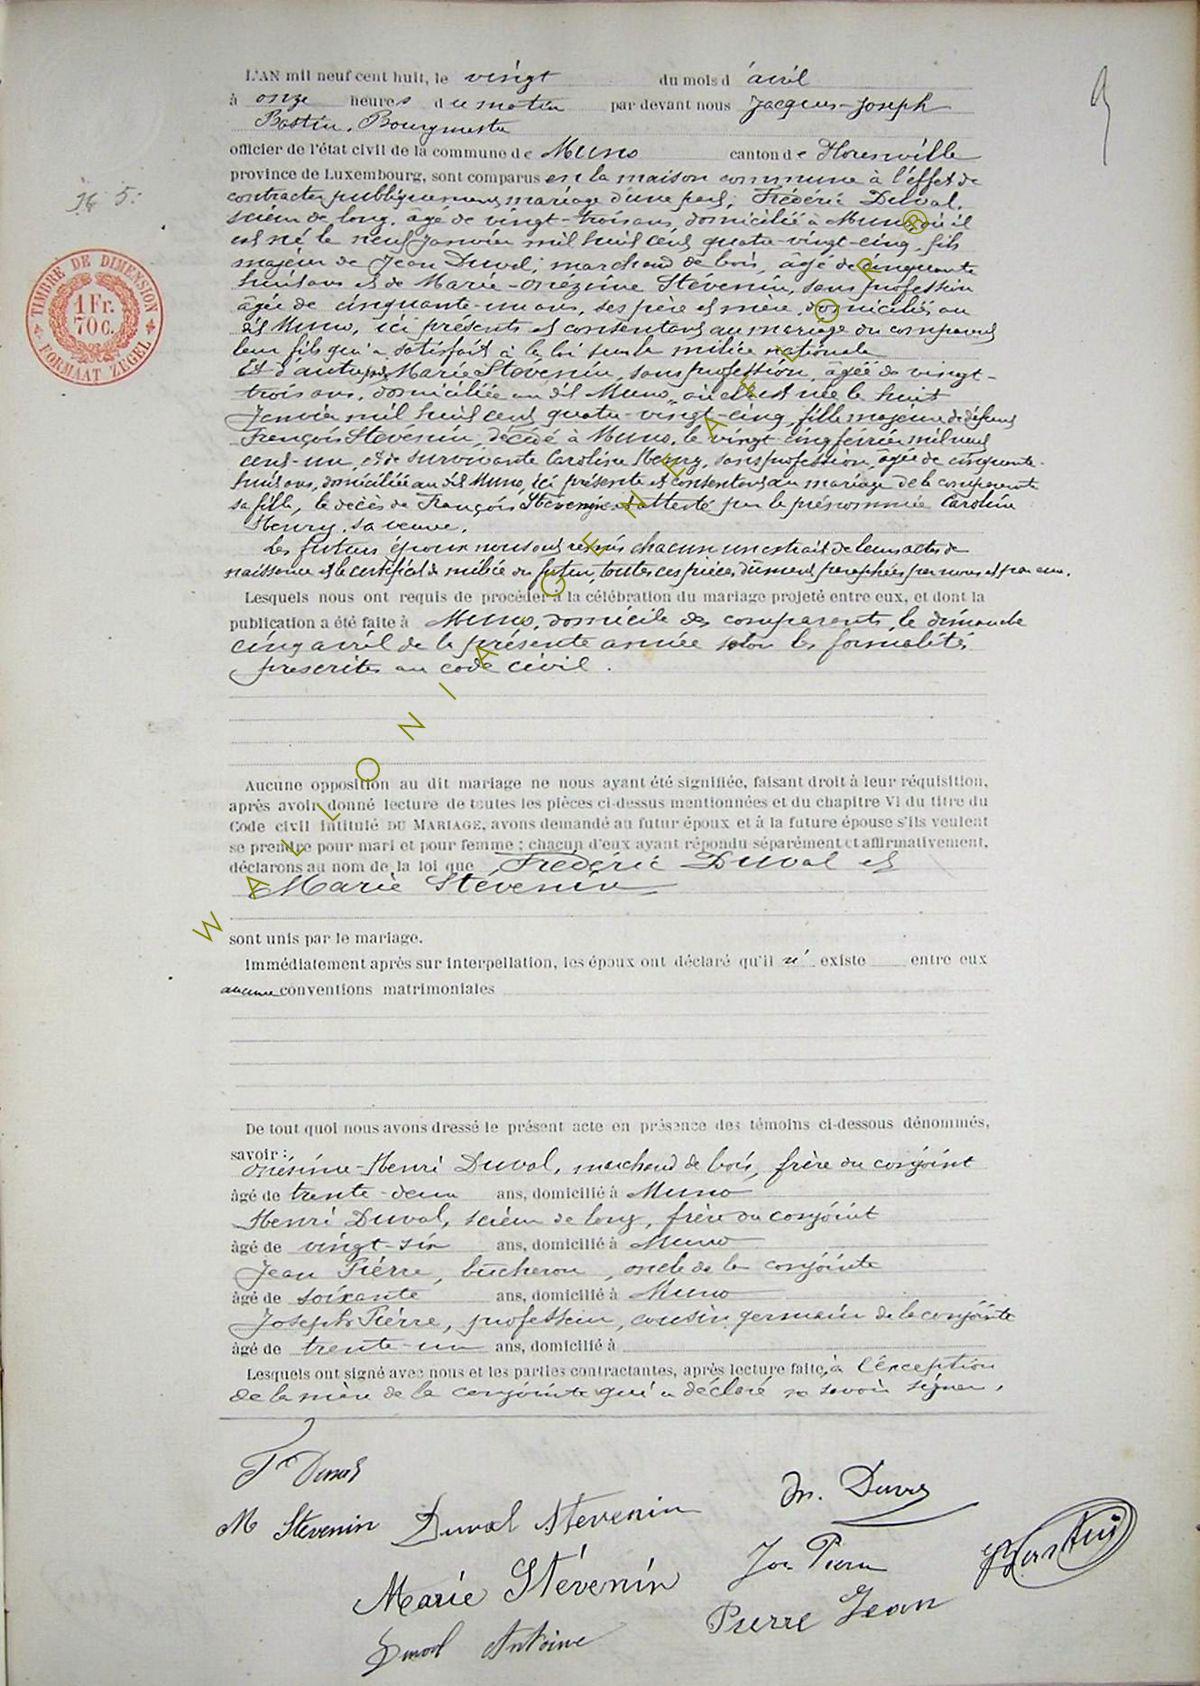 L'AN mil neuf cent huit, le vingt du mois d'avril
à onze heures du matin par devant nous Jacques-Joseph
Bastin, Bourgmestre
officier de l'état civil de la commune de Muno canton de Florenville
province de Luxembourg, sont comparus en la maison commune à l'effet de
contracter publiquement mariage d'une part, Frédéric Duval,
scieur de long, âgé de vingt-trois ans, domicilié à Muno où il
est né le neuf Janvier mil huit cent quatre-vingt-cinq, fils
majeur de Jean Duval, marchand de bois, âgé de cinquante
huit ans et de Marie-Onézime Stévenin, sans profession
âgée de cinquante-un ans, ses père et mère, domiciliés au
dit Muno, ici présents et consentant au mariage du comparant
leur fils qui a satisfait à la loi sur la milice nationale
Et d'autre part Marie Stévenin, sans profession, âgée de vingt-
trois ans, domiciliée au dit Muno, où elle est née le huit
Janvier mil huit cent quatre-vingt-cinq, fille majeure de défunt
François Stévenin, décédé à Muno, le vingt-cinq février mil neuf
cent-un et de survivante Caroline Henry, sans profession, âgée de cinquante-
huit ans, domiciliée au dit Muno, ici présente et consentant au mariage de la comparante
sa fille, le décès de François Stévenin est attesté par la prénommée Caroline
Henry, sa veuve.
Les futurs époux nous ont remis chacun un extrait de leurs actes de
naissance et le certificat de milice du futur, toutes ces pièces dûment paraphées par nous et par eux.
Lesquels nous ont requis de procéder à la célébration du mariage projeté entre eux, et dont la
publication a été faite à Muno, domicile des comparants, le dimanche
cinq avril de la présente année selon les formalités
prescrites au code civil.
Aucune opposition au dit mariage ne nous ayant été signifiée, faisant droit à leur réquisition,
après avoir donné lecture de toutes les pièces ci-dessus mentionnées et du chapitre VI du titre du
Code civil intitulé DU MARIAGE, avons demandé au futur époux et à la future épouse s'ils veulent
se prendre pour mari et pour femme ; chacun d'eux ayant répondu séparément et affirmativement,
déclarons au nom de la loi que Frédéric Duval et
Marie Stévenin
sont unis par le mariage.
Immédiatement après sur interpellation, les époux ont déclaré qu'il n' existe entre eux
aucune conventions matrimoniales
De tout quoi nous avons dressé le présent acte en présence des témoins ci-dessous dénommés,
savoir :
Onésime-Henri Duval, marchand de bois, frère du conjoint
âgé de trente-deux ans, domicilié à Muno
Henri Duval, scieur de long, frère du conjoint
âgé de vingt-six ans, domicilié à Muno
Jean Pierre, bucheron, oncle de la conjointe
âgé de soixante ans, domicilié à Muno
Joseph Pierre, professeur, cousin germain de la conjointe
âgé de trente-un ans, domicilié à
Lesquels ont signé avec nous et les parties contractantes, après lecture faite, à l'exception
de la mère de la conjointe qui a déclaré ne savoir signer.
F Duval
M Stevenin Duval Stevenin
Marie Stévenin
Duval Antoine
Jos Pierre
Pierre Jean
JJBastin
TIMBRE DE DIMENSION
1 Fr.
70 c.
FORMAAT ZEGEL
WALLONIA GENEALOR